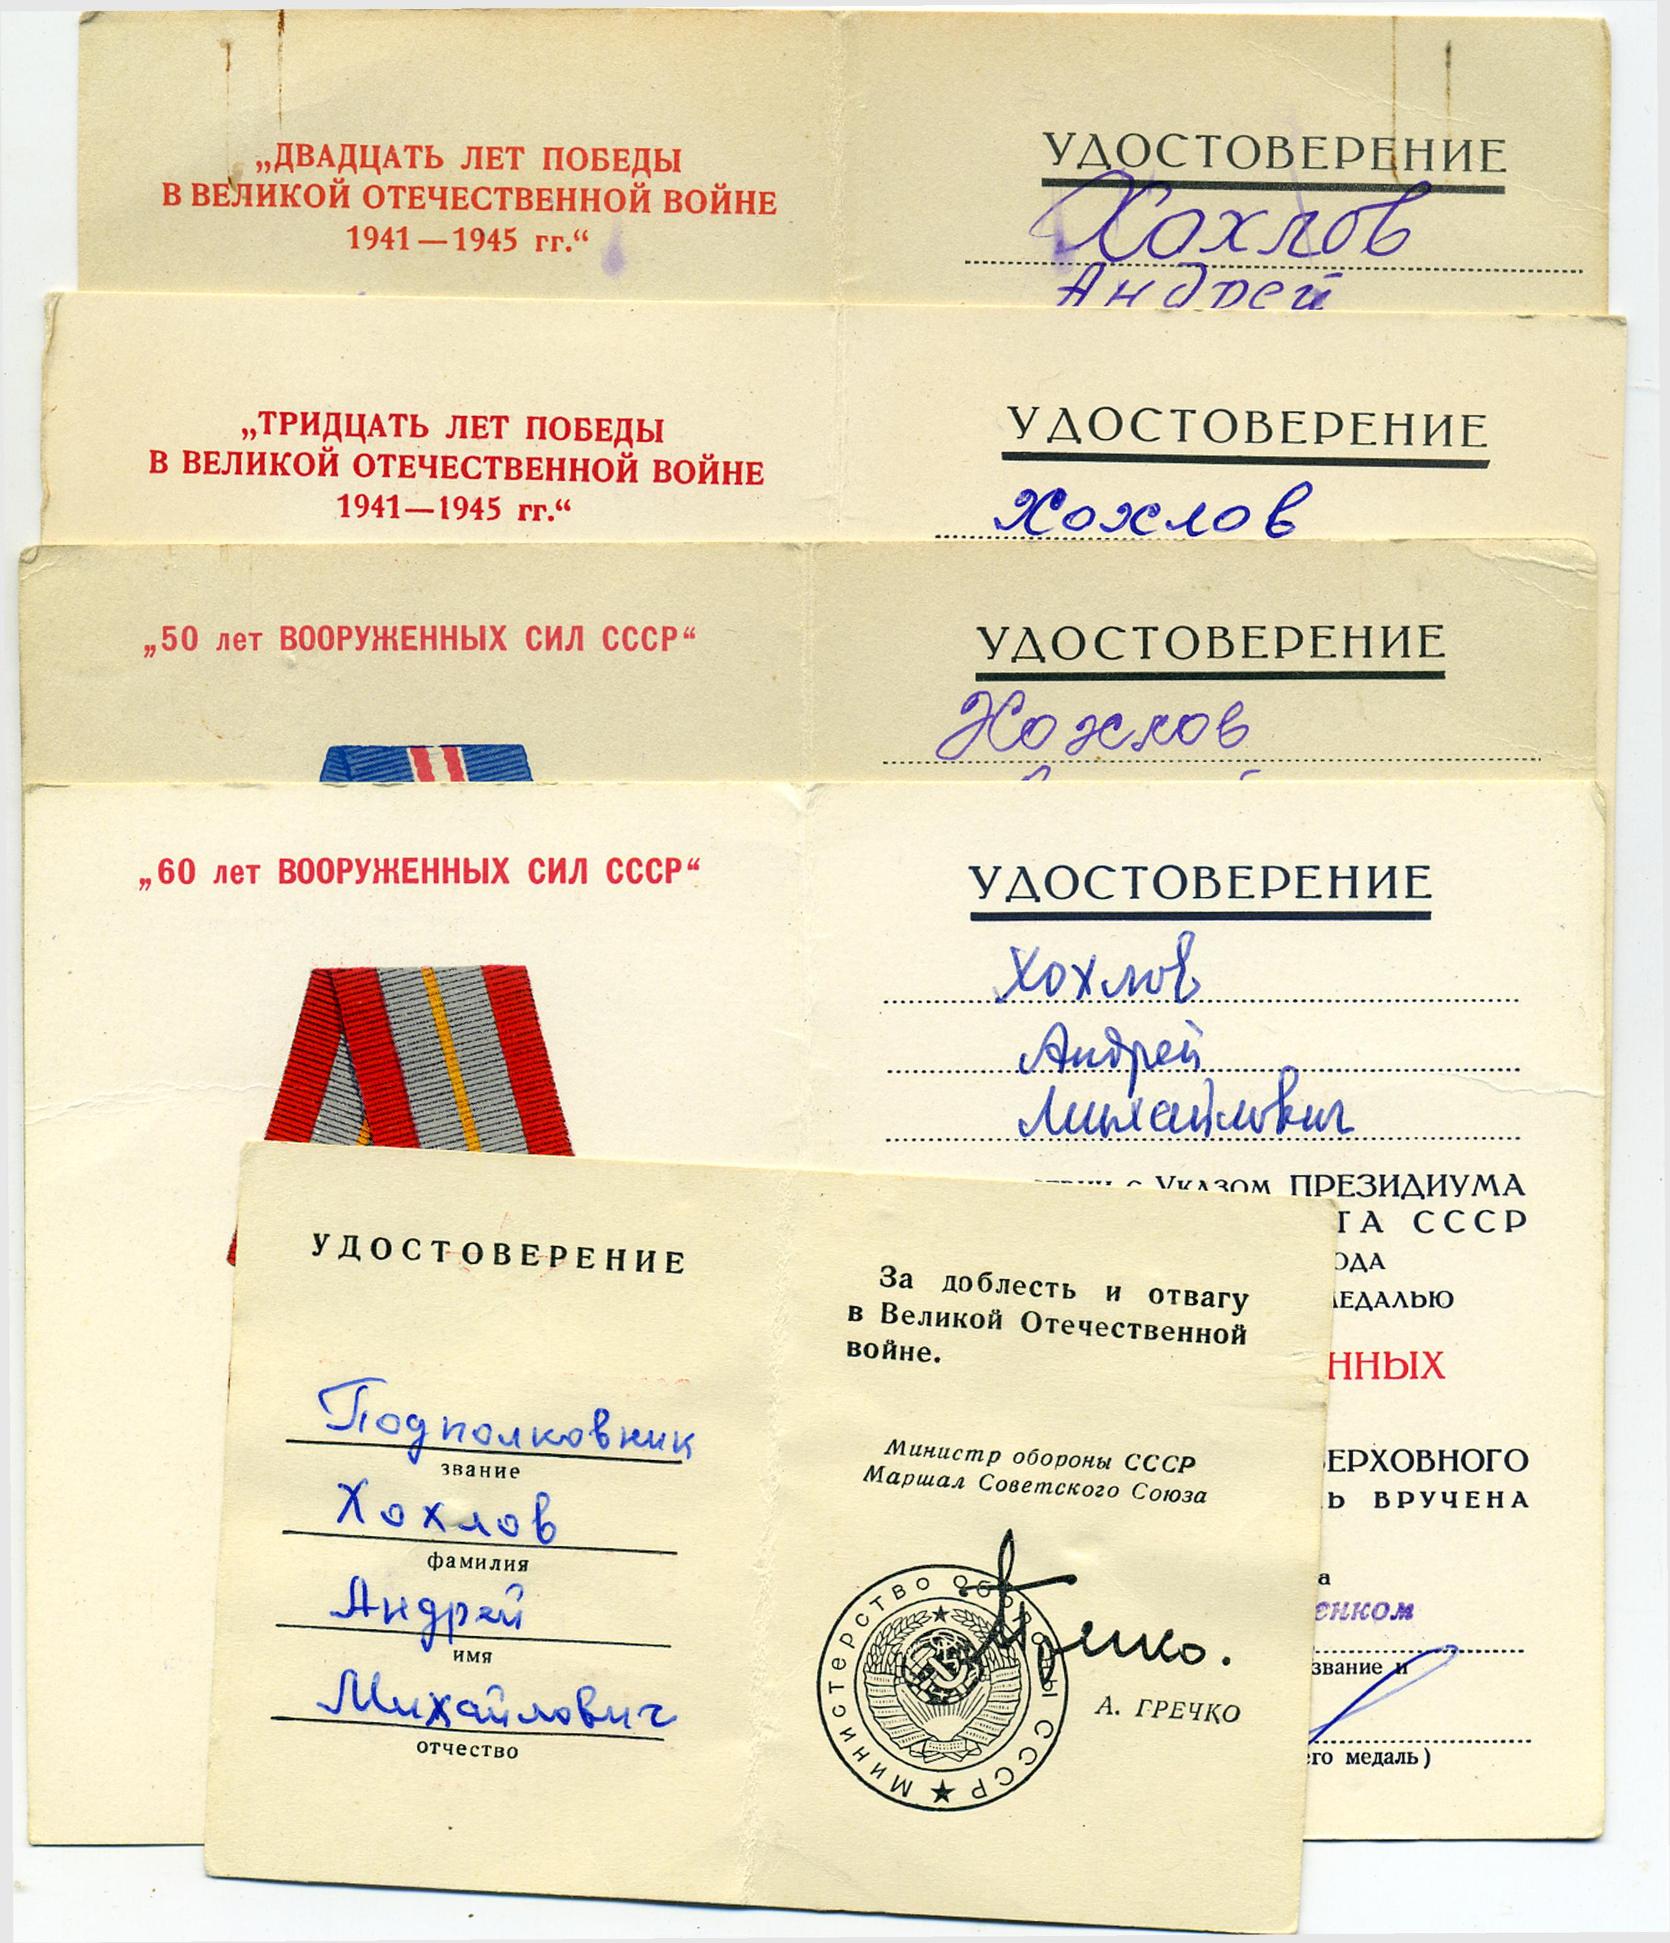 „ДВАДЦАТЬ ЛЕТ ПОБЕДЫ
В ВЕЛИКОЙ ОТЕЧЕСТВЕННОЙ ВОЙНЕ
1941—1945 гг.“
УДОСТОВЕРЕНИЕ
Хохлов
Андрей
„ТРИДЦАТЬ ЛЕТ ПОБЕДЫ
В ВЕЛИКОЙ ОТЕЧЕСТВЕННОЙ ВОЙНЕ
1941—1945 гг.“
УДОСТОВЕРЕНИЕ
Хохлов
„50 лет ВООРУЖЕННЫХ СИЛ СССР“
УДОСТОВЕРЕНИЕ
Хохлов
„60 лет ВООРУЖЕННЫХ СИЛ СССР“
УДОСТОВЕРЕНИЕ
Хохлов
Андрей
Михайлович
с Указом ПРЕЗИДИУМА
ТА СССР
ОДА
МЕДАЛЬЮ
ННЫХ
ЕРХОВНОГО
Ь ВРУЧЕНА
а
енком
звание и
го медаль)
УДОСТОВЕРЕНИЕ
Подполковник
звание
Хохлов
фамилия
Андрей
имя
Михайлович
отчество
За доблесть и отвагу
в Великой Отечественной
войне.
Министр обороны СССР
Маршал Советского Союза
МИНИСТЕРСТВО ОБОРОНЫ СССР
Гречко.
А. ГРЕЧКО